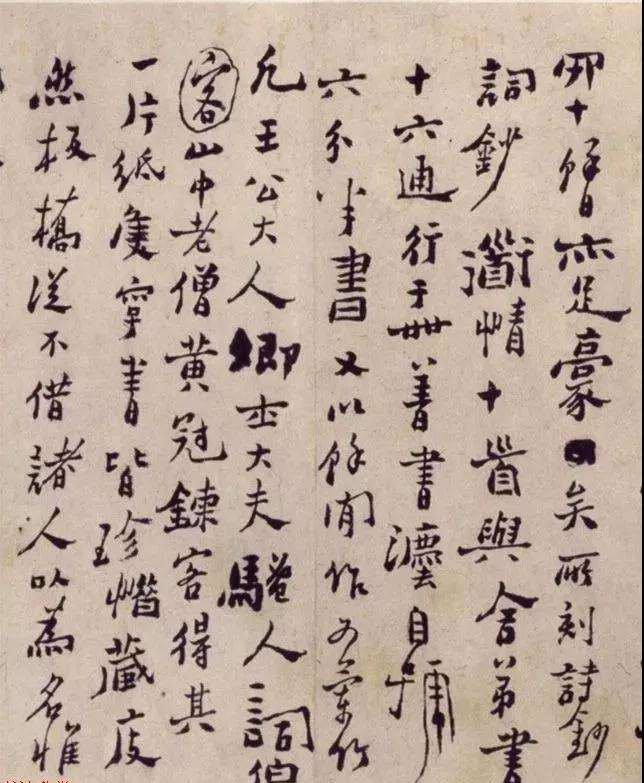 十亦足豪矣所刻詩鈔
詞鈔道情十首與舍弟書
十六通行于世善書法自號
六分半書又以餘閒作為蘭竹
凡王公大人卿士大夫騷人詞伯
客山中老僧黃冠鍊客得其
一片紙隻字書皆珍惜藏庋
然板橋從不借諸人以為名惟